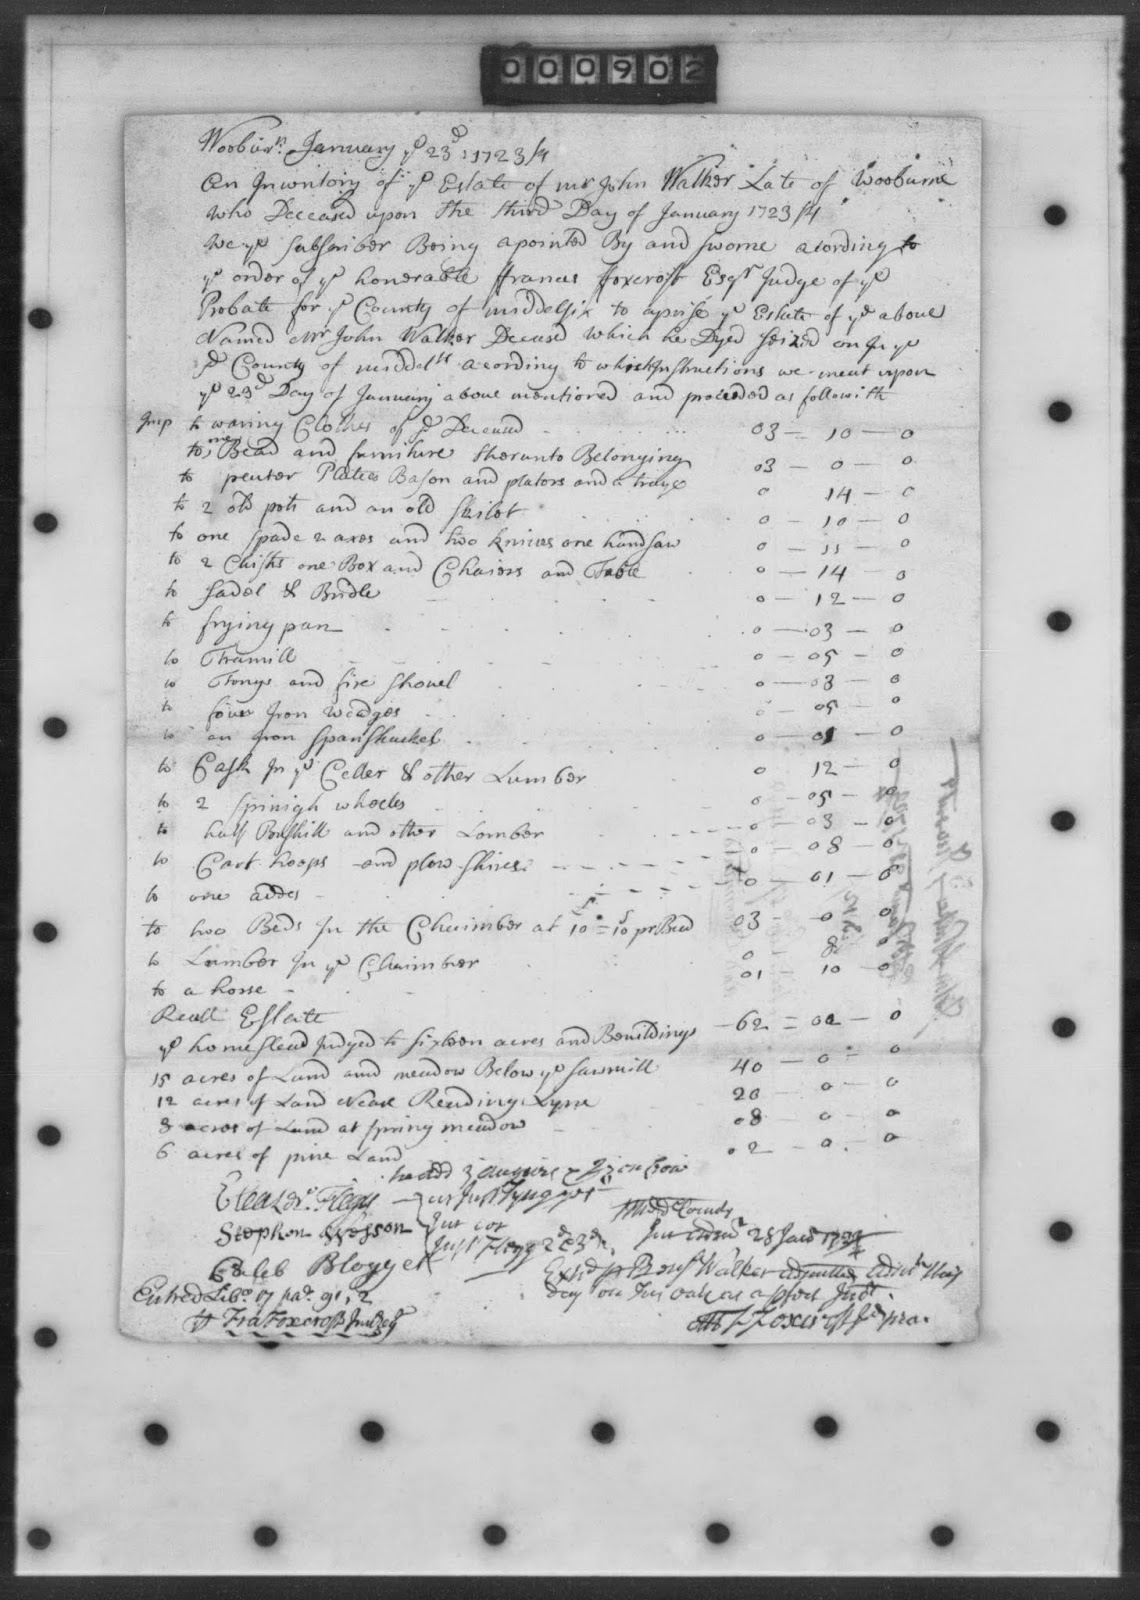 000902
Wooburn January ye 23d 1723/4
An Inventory of ye Estate of mr John Walker Late of Wooburne
who Deceased upon the third Day of January 1723/4
We ye subscriber Being apointed By and sworne acording to
ye order of ye honerable ffrancis ffoxcroft Esqr Judge of ye
Probate for ye County of middelsix to aprise ye Estate of ye above
Named Mr John Walker Deceased which he Dyed seized on In ye
sd County of middels acording to which Instructions we meat upon
ye 23d Day of January above mentioned and proceeded as followith
Imp to waring Clothes of ye Deceased 03 - 10 - 0
to one Bead and furniture thereunto Belonging 03 - 0 - 0
to peuter Plates Bason and plators and a traye 0 14 - 0
to 2 old pots and an old skilet 0 - 10 - 0
to one spade 2 axes and two knives one handsaw 0 - 11 - 0
to 2 Chists one Box and Chaiors and Table 0 - 14 - 0
to sadel & Bridle 0 - 12 - 0
to frying pan 0 - 03 - 0
to Tramill 0 - 05 - 0
to Tongs and fire shovel 0 - 03 - 0
to fouer Iron wedges 0 - 05 - 0
to an Iron spanshackel 0 - 01 - 0
to Cask In ye Celler & other Lumber 0 12 - 0
to 2 spinigh wheeles 0 - 05 - 0
to half Boushill and other Lomber 0 - 03 - 0
to Cart hoops and plow shires 0 - 08 - 0
to one addes 0 - 01 - 0
to two Beds In the Chaimber at 10 = 10 pr Bed 03 - 0 0
to Lumber In ye Chaimber 0 - 8 0
to a horse 01 - 10 - 0
Reall Estate
ye homestead Judged to sixteen acres and Bouildings 62 = 02 - 0
15 acres of Land and meadow Below ye sawmill 40 - 0 - 0
12 acres of Land Neare Reading Lyne 20 0 - 0
8 acres of Land at spring meadow 08 - 0 - 0
6 acres of pine Land 02 - 0 - 0
Eleazer Flegg
Stephen Wesson
Caleb Blogget
Midd
28 Jan 1723/4
Exhd pr Benj Walker admitted Admr
day on his oath
Entred Libo 17 pa 91, 2
pr Fra Foxcroft
Att F Foxcroft J pro.